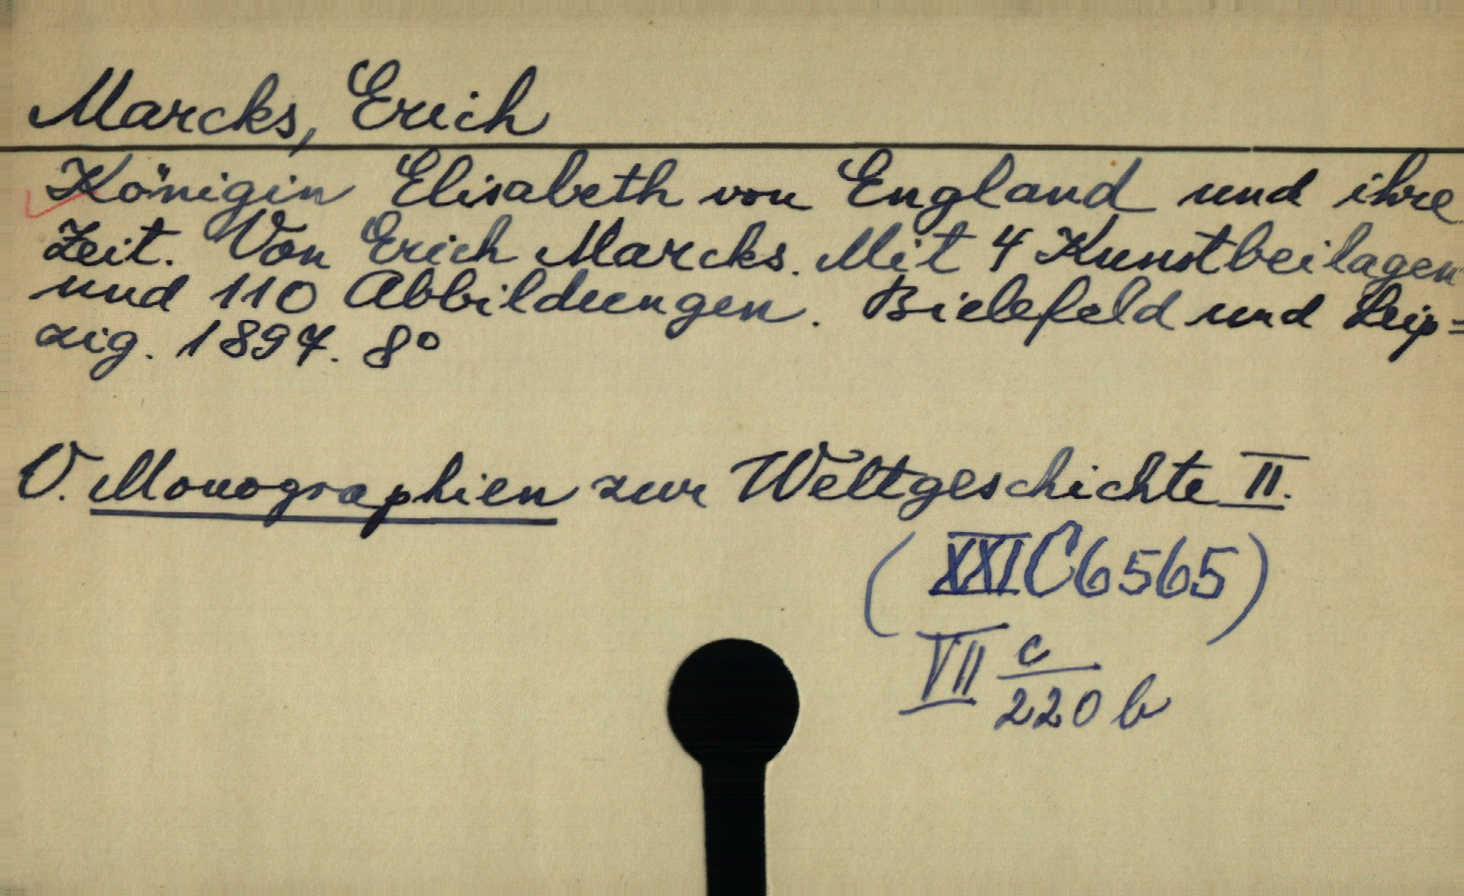 Marcks, Erich
Königin Elisabeth von England und ihre
Zeit. Von Erich Marcks. Mit 4 Kunstbeilagen
und 110 Abbildungen. Bielefeld und Leip=
zig. 1897. 8°
V. Monographien zur Weltgeschichte II.
(XXIC6565)
VII c/220 b